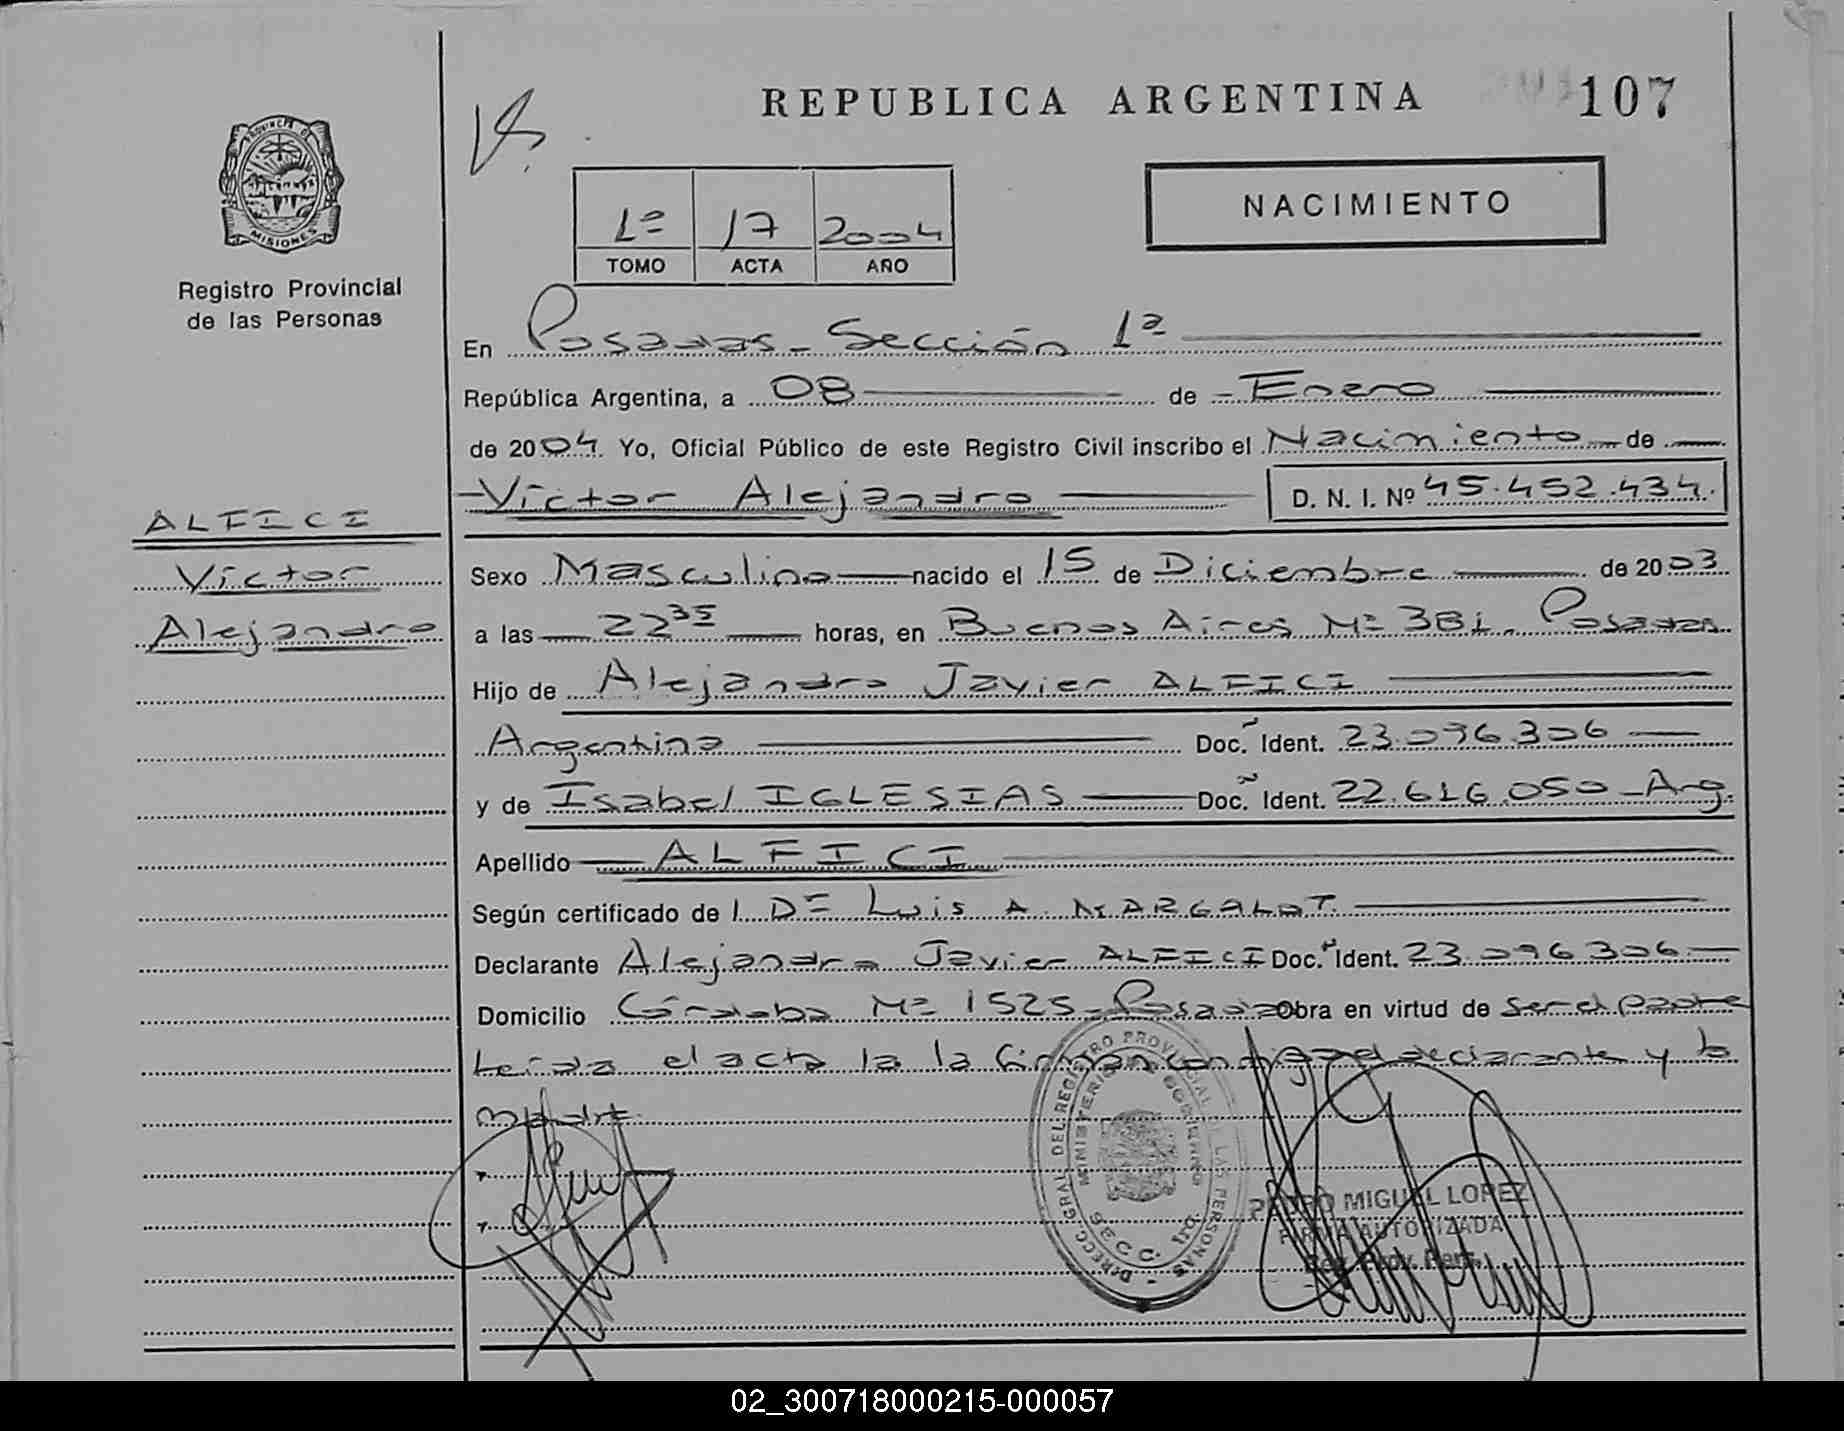 REPUBLICA ARGENTINA
107
PROVINCIA DE
MISIONES
Registro Provincial
de las Personas
1º 17 2004
TOMO ACTA AÑO
NACIMIENTO
En Posadas - Sección 1ª
República Argentina, a 08 de Enero
de 2004 Yo, Oficial Público de este Registro Civil inscribo el Nacimiento de
Victor Alejandro D. N. I. Nº 45.452.434.
ALFICI
Victor
Alejandro
Sexo Masculino nacido el 15 de Diciembre de 2003
a las 22 35 horas, en Buenos Aires Nº 381. Posadas
Hijo de Alejandro Javier ALFICI
Argentino Doc. Ident. 23.096.306
y de Isabel IGLESIAS Doc. Ident. 22.616.050 - Arg.
Apellido ALFICI
Según certificado de Dr Luis A. MARGALOT.
Declarante Alejandro Javier ALFICI Doc. Ident. 23.096.306
Domicilio Córdoba Nº 1525 - Posadas Obra en virtud de ser el padre
Leída el acta la firman conmigo el declarante y la
madre.
DIRECC. GRAL. DEL REGISTRO PROVINCIAL DE LAS PERSONAS
MINISTERIO DE GOBIERNO
SECC. 1RO.
PEDRO MIGUEL LOPEZ
FIRMA AUTORIZADA
Reg. Prov. Pers.
02_300718000215-000057